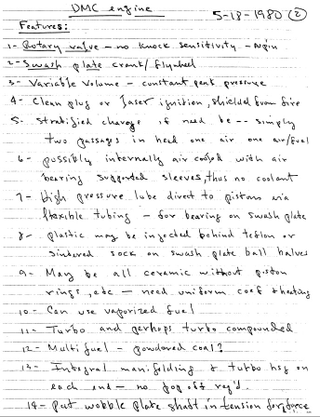 DMC engine
5-18-1980 (2)
Features:
1- Rotary valve - no knock sensitivity - Npin
2- Swash plate crank/flywheel
3- Variable Volume - constant peak pressure
4- Clean plug or laser ignition, shielded from fire
5- Stratified charge if need be -- simply
two passages in head one air one air/fuel
6- possibly internally air cooled with air
bearing supported sleeves, thus no coolant
7- High pressure lube direct to piston via
flexible tubing - for bearing on swash plate
8- plastic may be injected behind teflon or
sintered sock on swash plate ball halves
9- May be all ceramic without piston
rings, etc - need uniform coef & heating
10- Can use vaporized fuel
11- Turbo and perhaps turbo compounded
12- Multi fuel - powdered coal?
13- Integral manifolding & turbo hsg on
each end - no
14- Put wobble plate shaft in tension